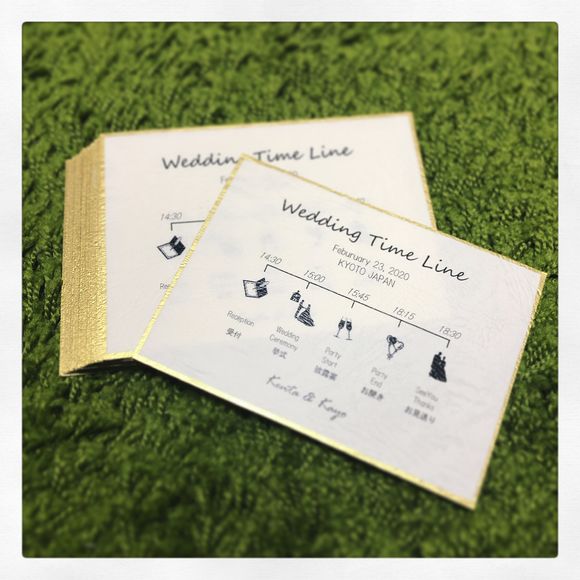 Wedding Time Line
14:30
Wedding Time Line
Feburuary 23, 2020
KYOTO JAPAN
14:30
15:00
15:45
18:15
18:30
Reception
受付
Wedding
Ceremony
挙式
Party
Start
披露宴
Party
End
お開き
SeeYou
Thanks
お見送り
Kenta & Kayo